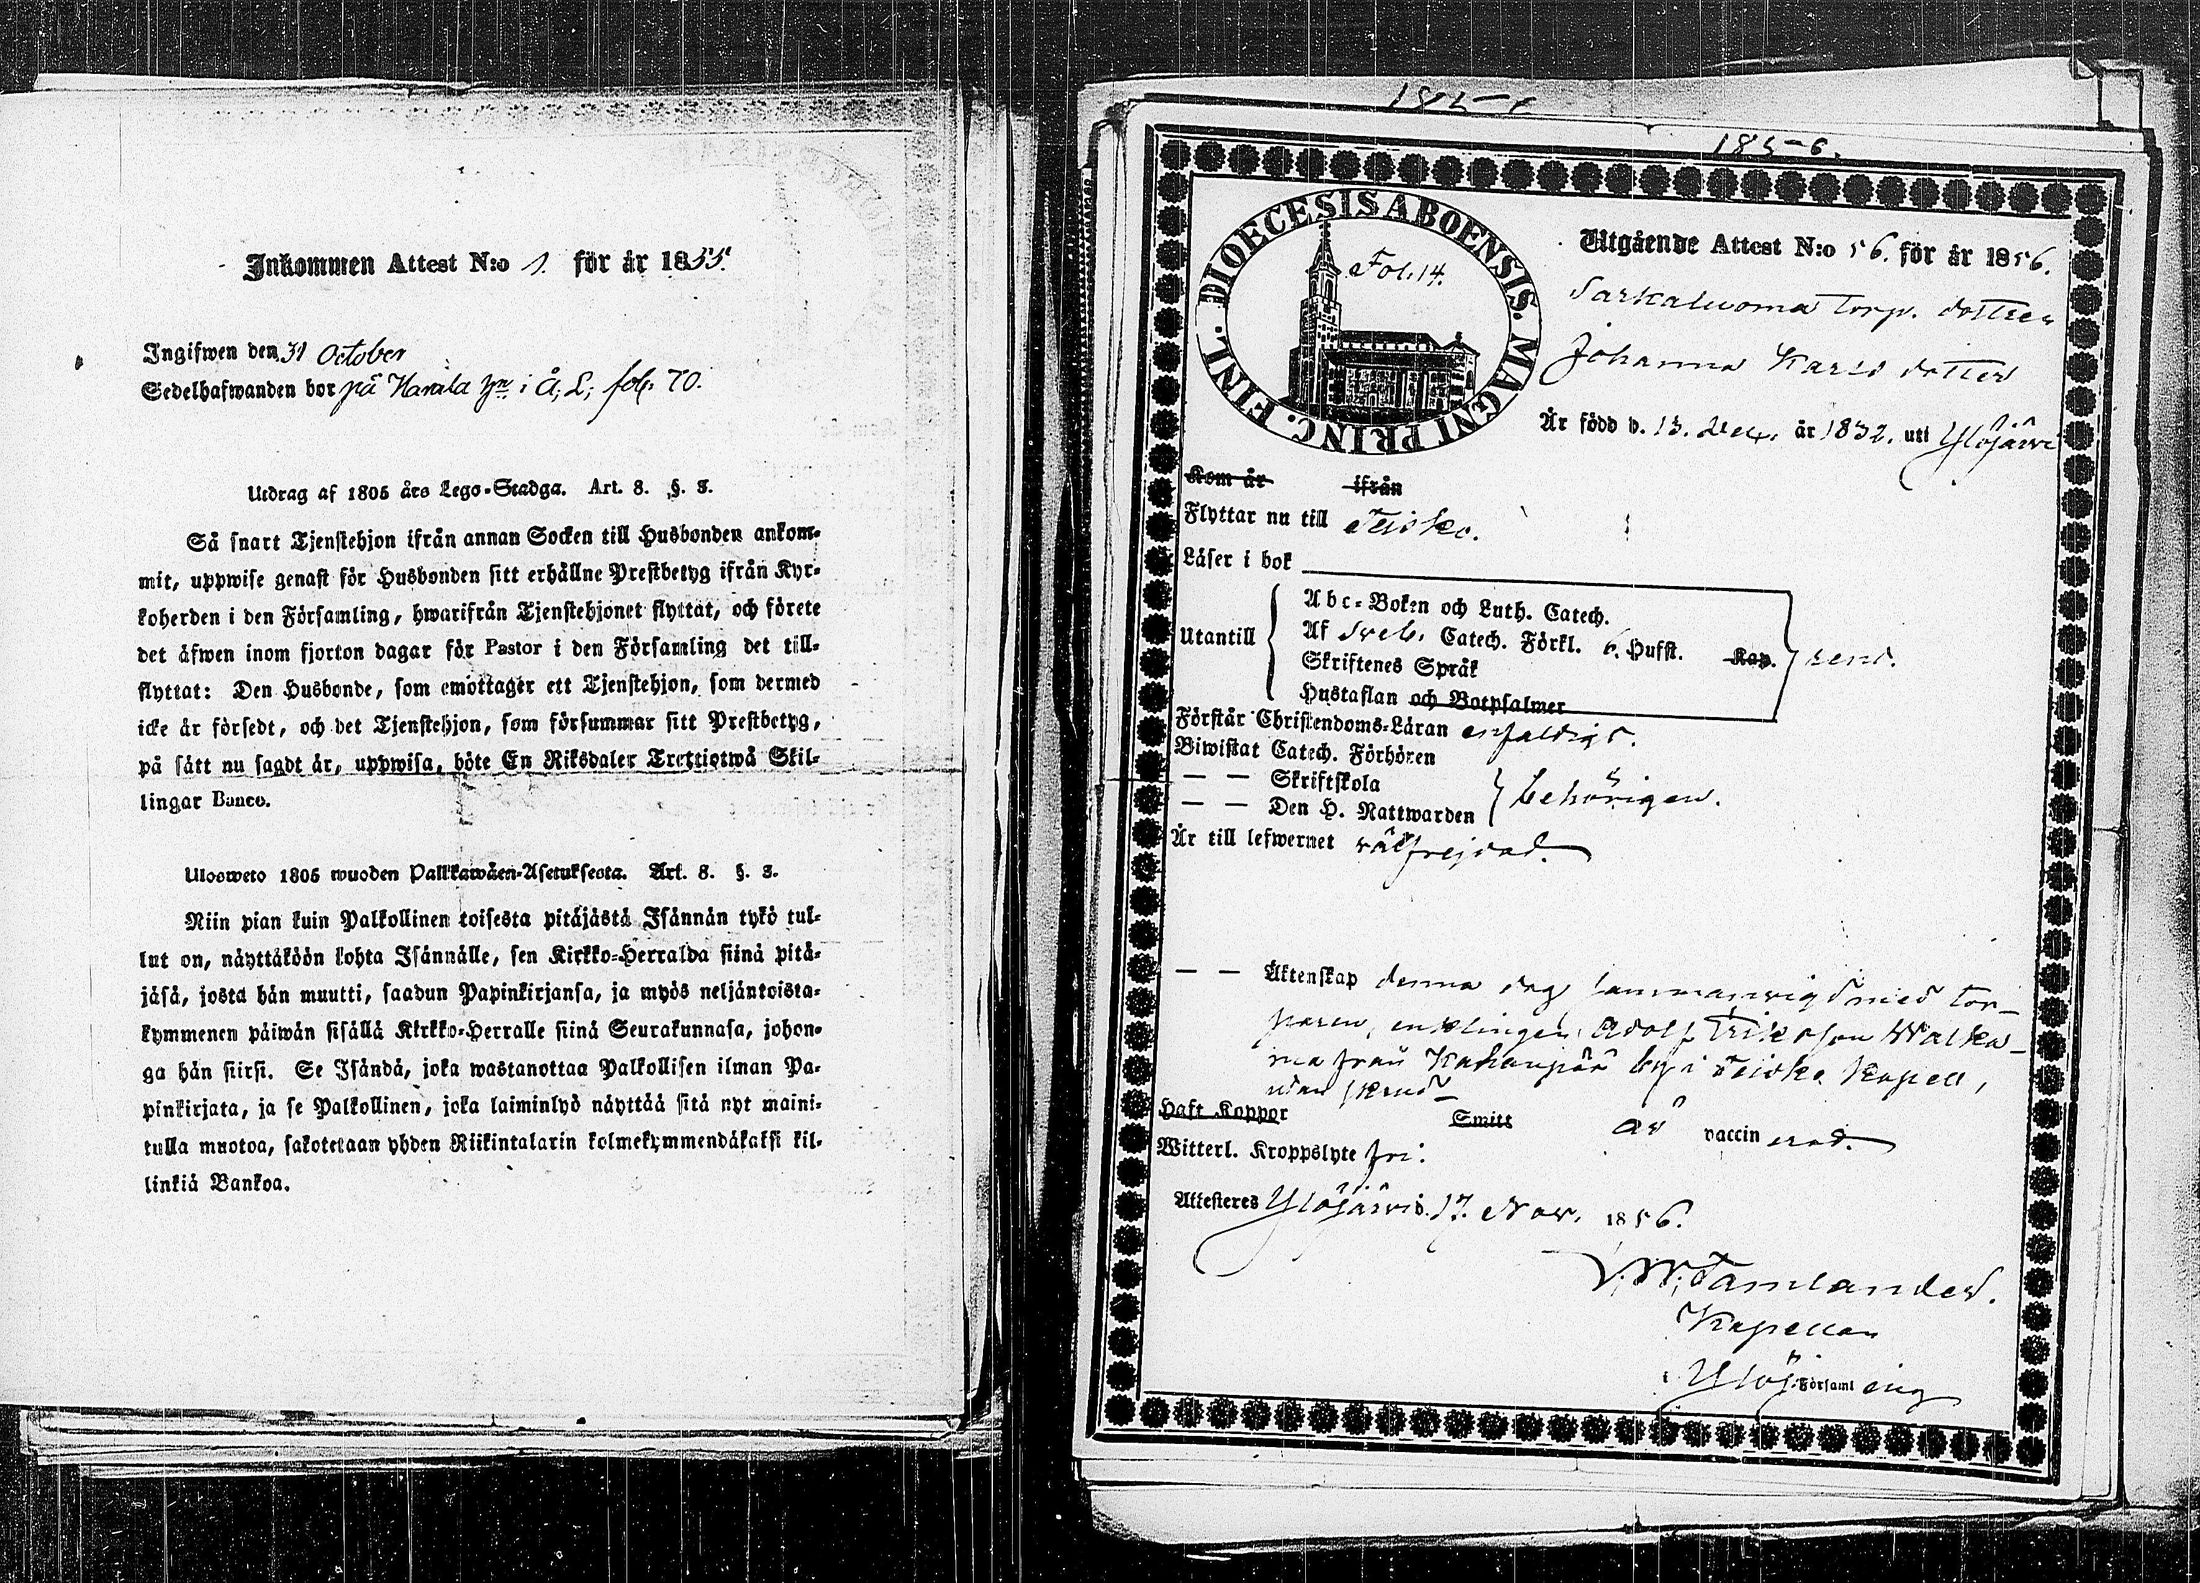 Inkommen Attest N:o 1. för år 1855.
Ingifwen den 31 October
Sedelhafwanden bor på Harala i Å; L; fol. 70.
Utdrag af 1805 års Lego-Stadga. Art. 8. §. 3.
Så snart Tjenstehjon ifrån annan Socken till Husbonden ankom-
mit, uppwise genast för Husbonden sitt erhållne Prestbetyg ifrån Kyr-
koherden i den Församling, hwarifrån Tjenstehjonet flyttat, och förete
det äfwen inom fjorton dagar för Pastor i den Församling det till-
flyttat: Den Husbonde, som emottager ett Tjenstehjon, som dermed
icke är försedt, och det Tjenstehjon, som försummar sitt Prestbetyg,
på sätt nu sagdt är, uppwisa, böte En Riksdaler Trettiotwå Skil-
lingar Banco.
Ulosweto 1805 wuoden Palkkawäen-Asetuksesta. Art. 8. §. 3.
Niin pian kuin Palkollinen toisesta pitäjästä Isännän tykö tul-
lut on, näyttäköön kohta Isännälle, sen Kirkko-Herralda siinä pitä-
jäsä, josta hän muutti, saadun Papinkirjansa, ja myös neljäntoista-
kymmenen päiwän sisällä Kirkko-Herralle siinä Seurakunnasa, johon-
ga hän siirsi. Se Isändä, joka wastanottaa Palkollisen ilman Pa-
pinkirjata, ja se Palkollinen, joka laiminlyö näyttää sitä nyt maini-
tulla muotoa, sakotetaan yhden Riikintalarin kolmekymmendäkaksi kil-
linkiä Bankoa.
185-6.
DIOECESIS ABOENSIS. MAGNI PRINC. FINL.
Fol. 14.
Utgående Attest N:o 56. för år 1856.
Sarkaluoma Torp. dottren
Johanna Karls dotter
Är född d. 13. Dec. år 1832. uti Ylöjärvi
Kom år ifrån
Flyttar nu till Teisko.
Läser i bok
Utantill
Abc-Boken och Luth. Catech.
Af Sveb. Catech. Förkl. 6. Hufst. Kap.
Skriftenes Språk
Hustaflan och Botpsalmer
rent.
Förstår Christendoms-Läran enfaldigt.
Biwistat Catech. Förhören
— — Skriftskola
— — Den H. Nattwarden
behörigen.
Är till lefwernet välfrejdad.
— — Äktenskap denna dag sammanvigd med tor-
paren, enklingen Adolf Eriksson Walka-
ma från Kahanpää by i Teisko Kapell,
utan skrud
Haft Koppor Smitt är vaccinerad.
Witterl. Kroppslyte fri.
Attesteres Ylöjärvi d. 17. Nov. 1856.
Tamlander.
Kapellan
i Ylöj. Församling